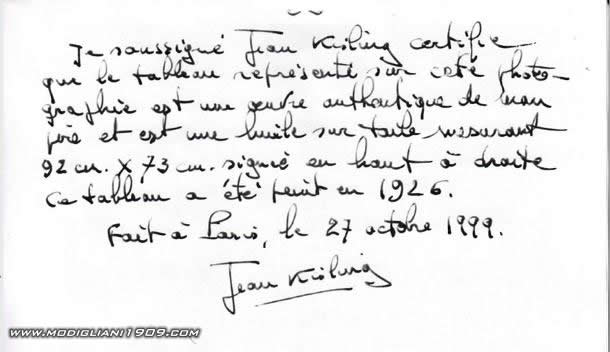 Je soussigné Jean Kisling certifie
que le tableau représenté sur cete photo-
graphie est une œuvre authentique de mon
père et est une huile sur toile mesurant
92 cm. X 73 cm. signé en haut à droite
Ce tableau a été peint en 1926.
Fait à Paris, le 27 octobre 1999.
Jean Kisling
WWW.MODIGLIANI1909.COM